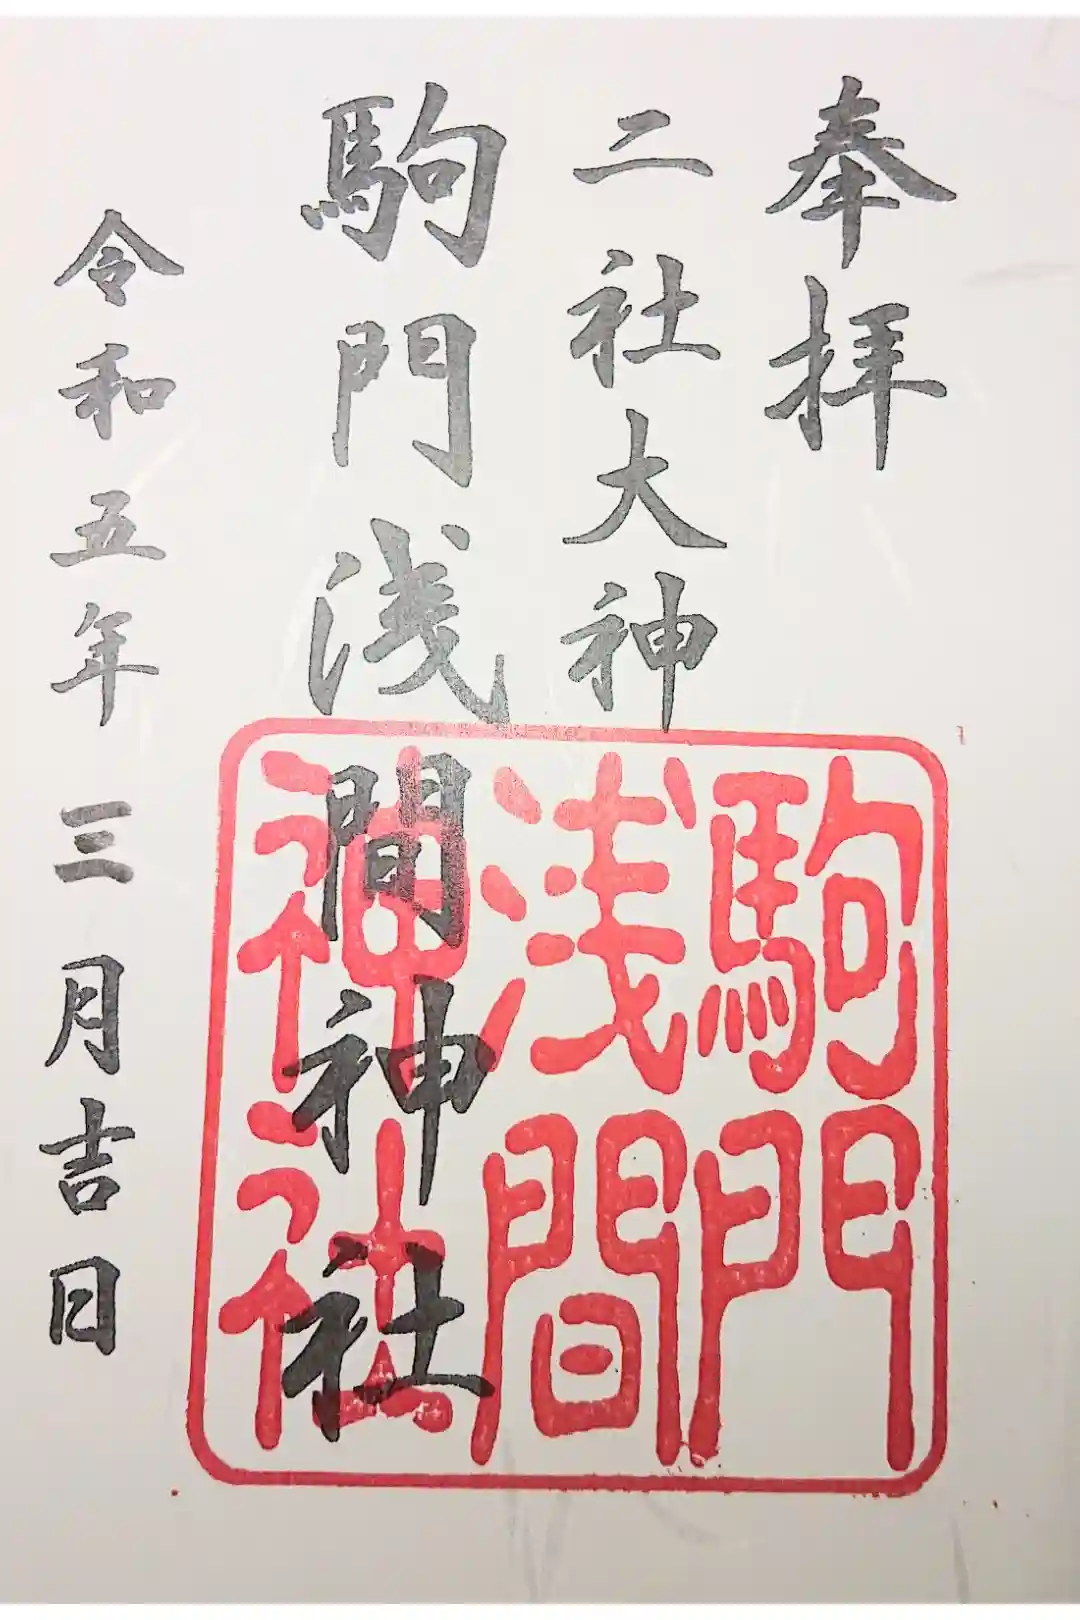 奉拝
二社大神
駒門浅間神社
令和五年三月吉日
駒門
浅間
神社